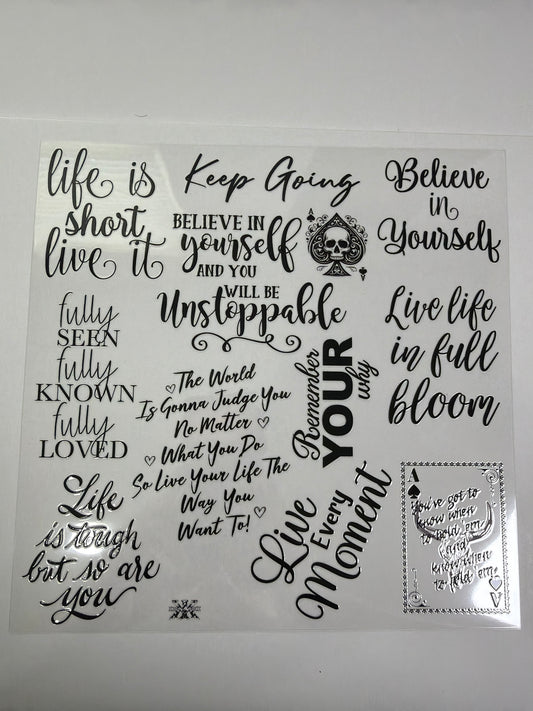 life is
short
live it
Keep Going
Believe
in
Yourself
BELIEVE IN
yourself
AND YOU
WILL BE
Unstoppable
A
A
fully
SEEN
fully
KNOWN
fully
LOVED
The World
Is Gonna Judge You
No Matter
What You Do
So Live Your Life The
Way You
Want To!
Remember
YOUR
why
Live life
in full
bloom
Life
is tough
but so are
you
Live
Every
Moment
A
You've got to
know when
to hold 'em
and
know when
to fold 'em
A